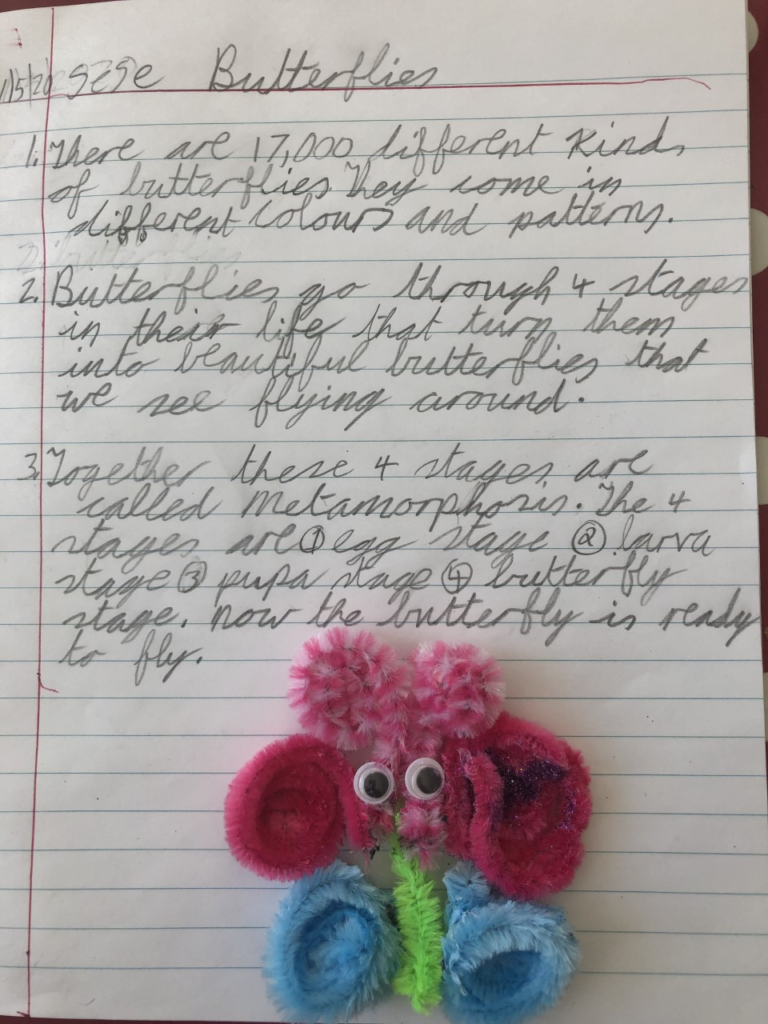 Butterflies
1. There are 17,000 different kinds
of butterflies. They come in
different colours and patterns.
2. Butterflies go through 4 stages
in their life that turn them
into beautiful butterflies that
we see flying around.
3. Together these 4 stages are
called Metamorphosis. The 4
stages are ① egg stage ② larva
stage ③ pupa stage ④ butterfly
stage. now the butterfly is ready
to fly.